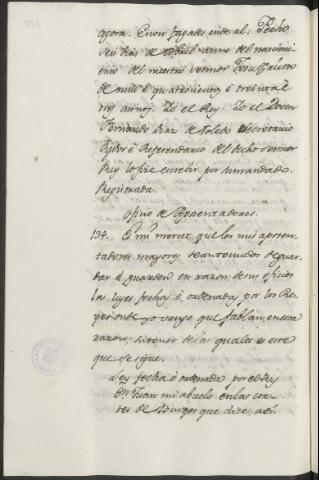 agora. E non fagades ende al. Fecho
seis dias de Abril anno del nacimi-
ento del nuestro sennor Jesu Christo
de mill é quatrocientos é treinta é
annos. Yo el Rey. Yo el Doctor
Fernando Diaz de Toledo Secretario
Oydor é Referendario del dicho sennor
Rey lo fize escrebir por su mandado.
Registrada.
Oficio de Aposentadores.
134. Es mi merced que los mis aposen-
tadores mayores de antonudos de guar-
dar é guarden en razon de sus oficios
las leyes fechas é ordenadas por los Re-
yes onde yo vengo que fablan en esta
razon, el tenor de las quales es este
que se sigue.
Ley fecha é ordenada por el Rey
Dn. Juan mi abuelo en las cor-
tes de Burgos que dice asi.